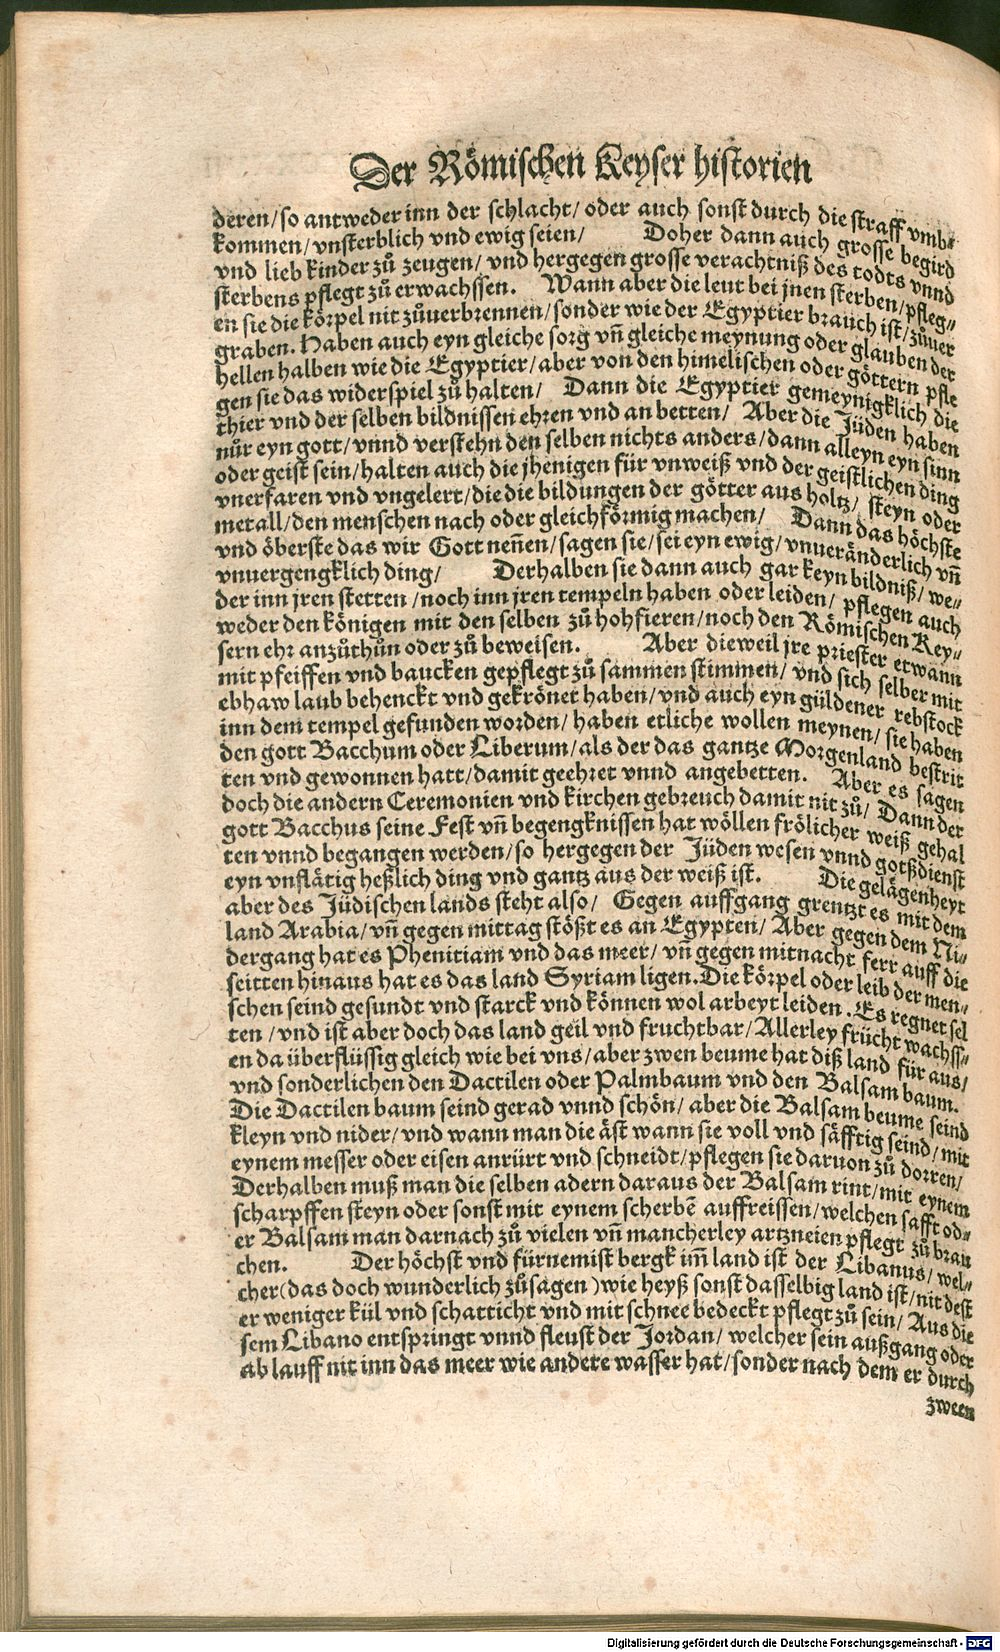 Der Römischen Keyser historien
deren/ so antweder inn der schlacht/ oder auch sonst durch die straff vmb⸗
kommen/ vnsterblich vnd ewig seien/ Doher dann auch grosse begird
vnd lieb kinder zů zeugen/ vnd hergegen grosse verachtniß des todts vnnd
sterbens pflegt zů erwachssen. Wann aber die leut bei jnen sterben/ pfleg⸗
en sie die körpel nit zůuerbrennen/ sonder wie der Egyptier brauch ist/ zůuer
graben. Haben auch eyn gleiche sorg vñ gleiche meynung oder glauben der
hellen halben wie die Egyptier/ aber von den himelischen oder göttern pfle
gen sie das widerspiel zů halten/ Dann die Egyptier gemeynigklich die
thier vnd der selben bildnissen ehren vnd an betten/ Aber die Jüden haben
nůr eyn gott/ vnnd verstehn den selben nichts anders/ dann alleyn eyn sinn
oder geist sein/ halten auch die jhenigen für vnweiß vnd der geistlichen ding
vnerfaren vnd vngelert/ die die bildungen der götter aus holtz/ steyn oder
metall/ den menschen nach oder gleichförmig machen/ Dann das höchste
vnd öberste das wir Gott neñen/ sagen sie/ sei eyn ewig/ vnueränderlich vñ
vnuergengklich ding/ Derhalben sie dann auch gar keyn bildniß/ we⸗
der inn jren stetten/ noch inn jren tempeln haben oder leiden/ pflegen auch
weder den königen mit den selben zů hohfieren/ noch den Römischen Key⸗
sern ehr anzůthůn oder zů beweisen. Aber dieweil jre priester etwann
mit pfeiffen vnd baucken gepflegt zů sammen stimmen/ vnd sich selber mit
ebhaw laub behenckt vnd gekrönet haben/ vnd auch eyn güldener rebstock
inn dem tempel gefunden worden/ haben etliche wollen meynen/ sie haben
den gott Bacchum oder Liberum/ als der das gantze Morgenland bestrit
ten vnd gewonnen hatt/ damit geehret vnnd angebetten. Aber es sagen
doch die andern Ceremonien vnd kirchen gebreuch damit nit zů/ Dann der
gott Bacchus seine Fest vñ begengknissen hat wöllen frölicher weiß gehal
ten vnnd begangen werden/ so hergegen der Jüden wesen vnnd gotßdienst
eyn vnflätig heßlich ding vnd gantz aus der weiß ist. Die gelägenheyt
aber des Jüdischen lands steht also/ Gegen auffgang grentzt es mit dem
land Arabia/ vñ gegen mittag stößt es an Egypten/ Aber gegen dem Ni⸗
dergang hat es Phenitiam vnd das meer/ vñ gegen mitnacht ferr auff die
seitten hinaus hat es das land Syriam ligen. Die körpel oder leib der men⸗
schen seind gesundt vnd starck vnd können wol arbeyt leiden. Es regnet sel
ten/ vnd ist aber doch das land geil vnd fruchtbar/ Allerley frücht wachss⸗
en da überflüssig gleich wie bei vns/ aber zwen beume hat diß land für aus/
vnd sonderlichen den Dactilen oder Palmbaum vnd den Balsam baum.
Die Dactilen baum seind gerad vnnd schön/ aber die Balsam beume seind
kleyn vnd nider/ vnd wann man die äst wann sie voll vnd säfftig seind/ mit
eynem messer oder eisen anrürt vnd schneidt/ pflegen sie daruon zů dorren/
Derhalben muß man die selben adern daraus der Balsam rint/ mit eynem
scharpffen steyn oder sonst mit eynem scherbẽ auffreissen/ welchen safft od⸗
er Balsam man darnach zů vielen vñ mancherley artzneien pflegt zů brau
chen. Der höchst vnd fürnemist bergk iñ land ist der Libanus/ wel⸗
cher (das doch wunderlich zů sagen) wie heyß sonst dasselbig land ist/ nit dest
er weniger kül vnd schatticht vnd mit schnee bedeckt pflegt zů sein/ Aus die
sem Libano entspringt vnnd fleust der Jordan/ welcher sein außgang oder
ab lauff nit inn das meer wie andere wasser hat/ sonder nach dem er durch
zween
Digitalisierung gefördert durch die Deutsche Forschungsgemeinschaft - DFG